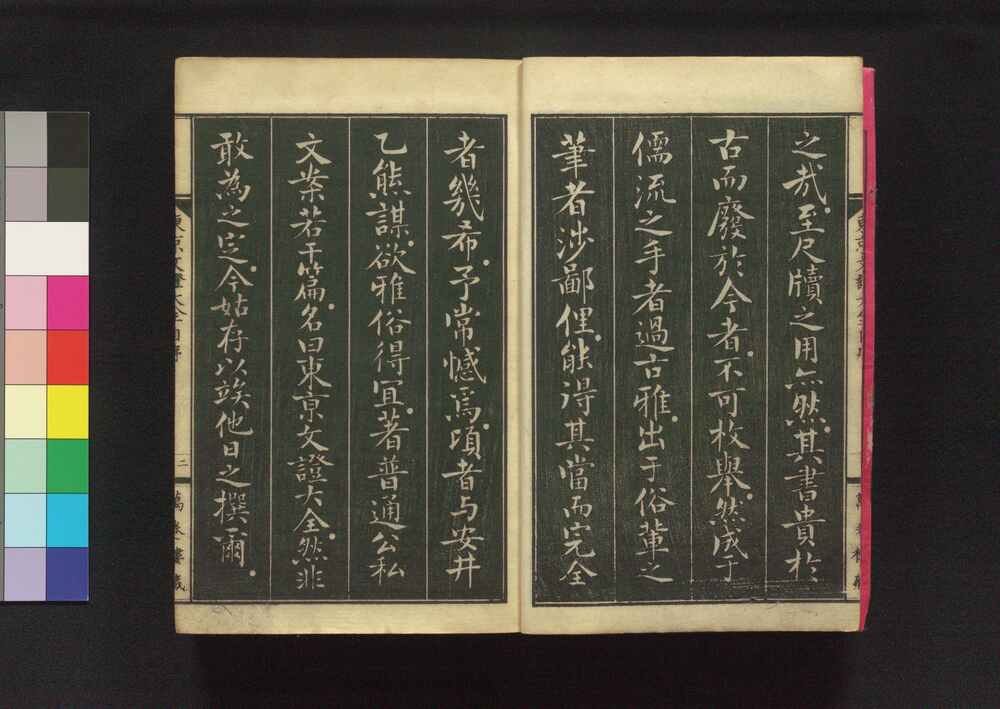 之哉。至尺牘之用亦然。其書貴於
古而廢於今者。不可枚舉。然成于
儒流之手者過古雅。出于俗輩之
筆者涉鄙俚。能得其當而完全
者幾希。予常憾焉。頃者与安井
乙熊謀。欲雅俗得宜。著普通公私
文案若干篇。名曰東京文證大全。然非
敢為之定。今姑存以竢他日之撰爾。
東京文證大全
二
萬
樓藏